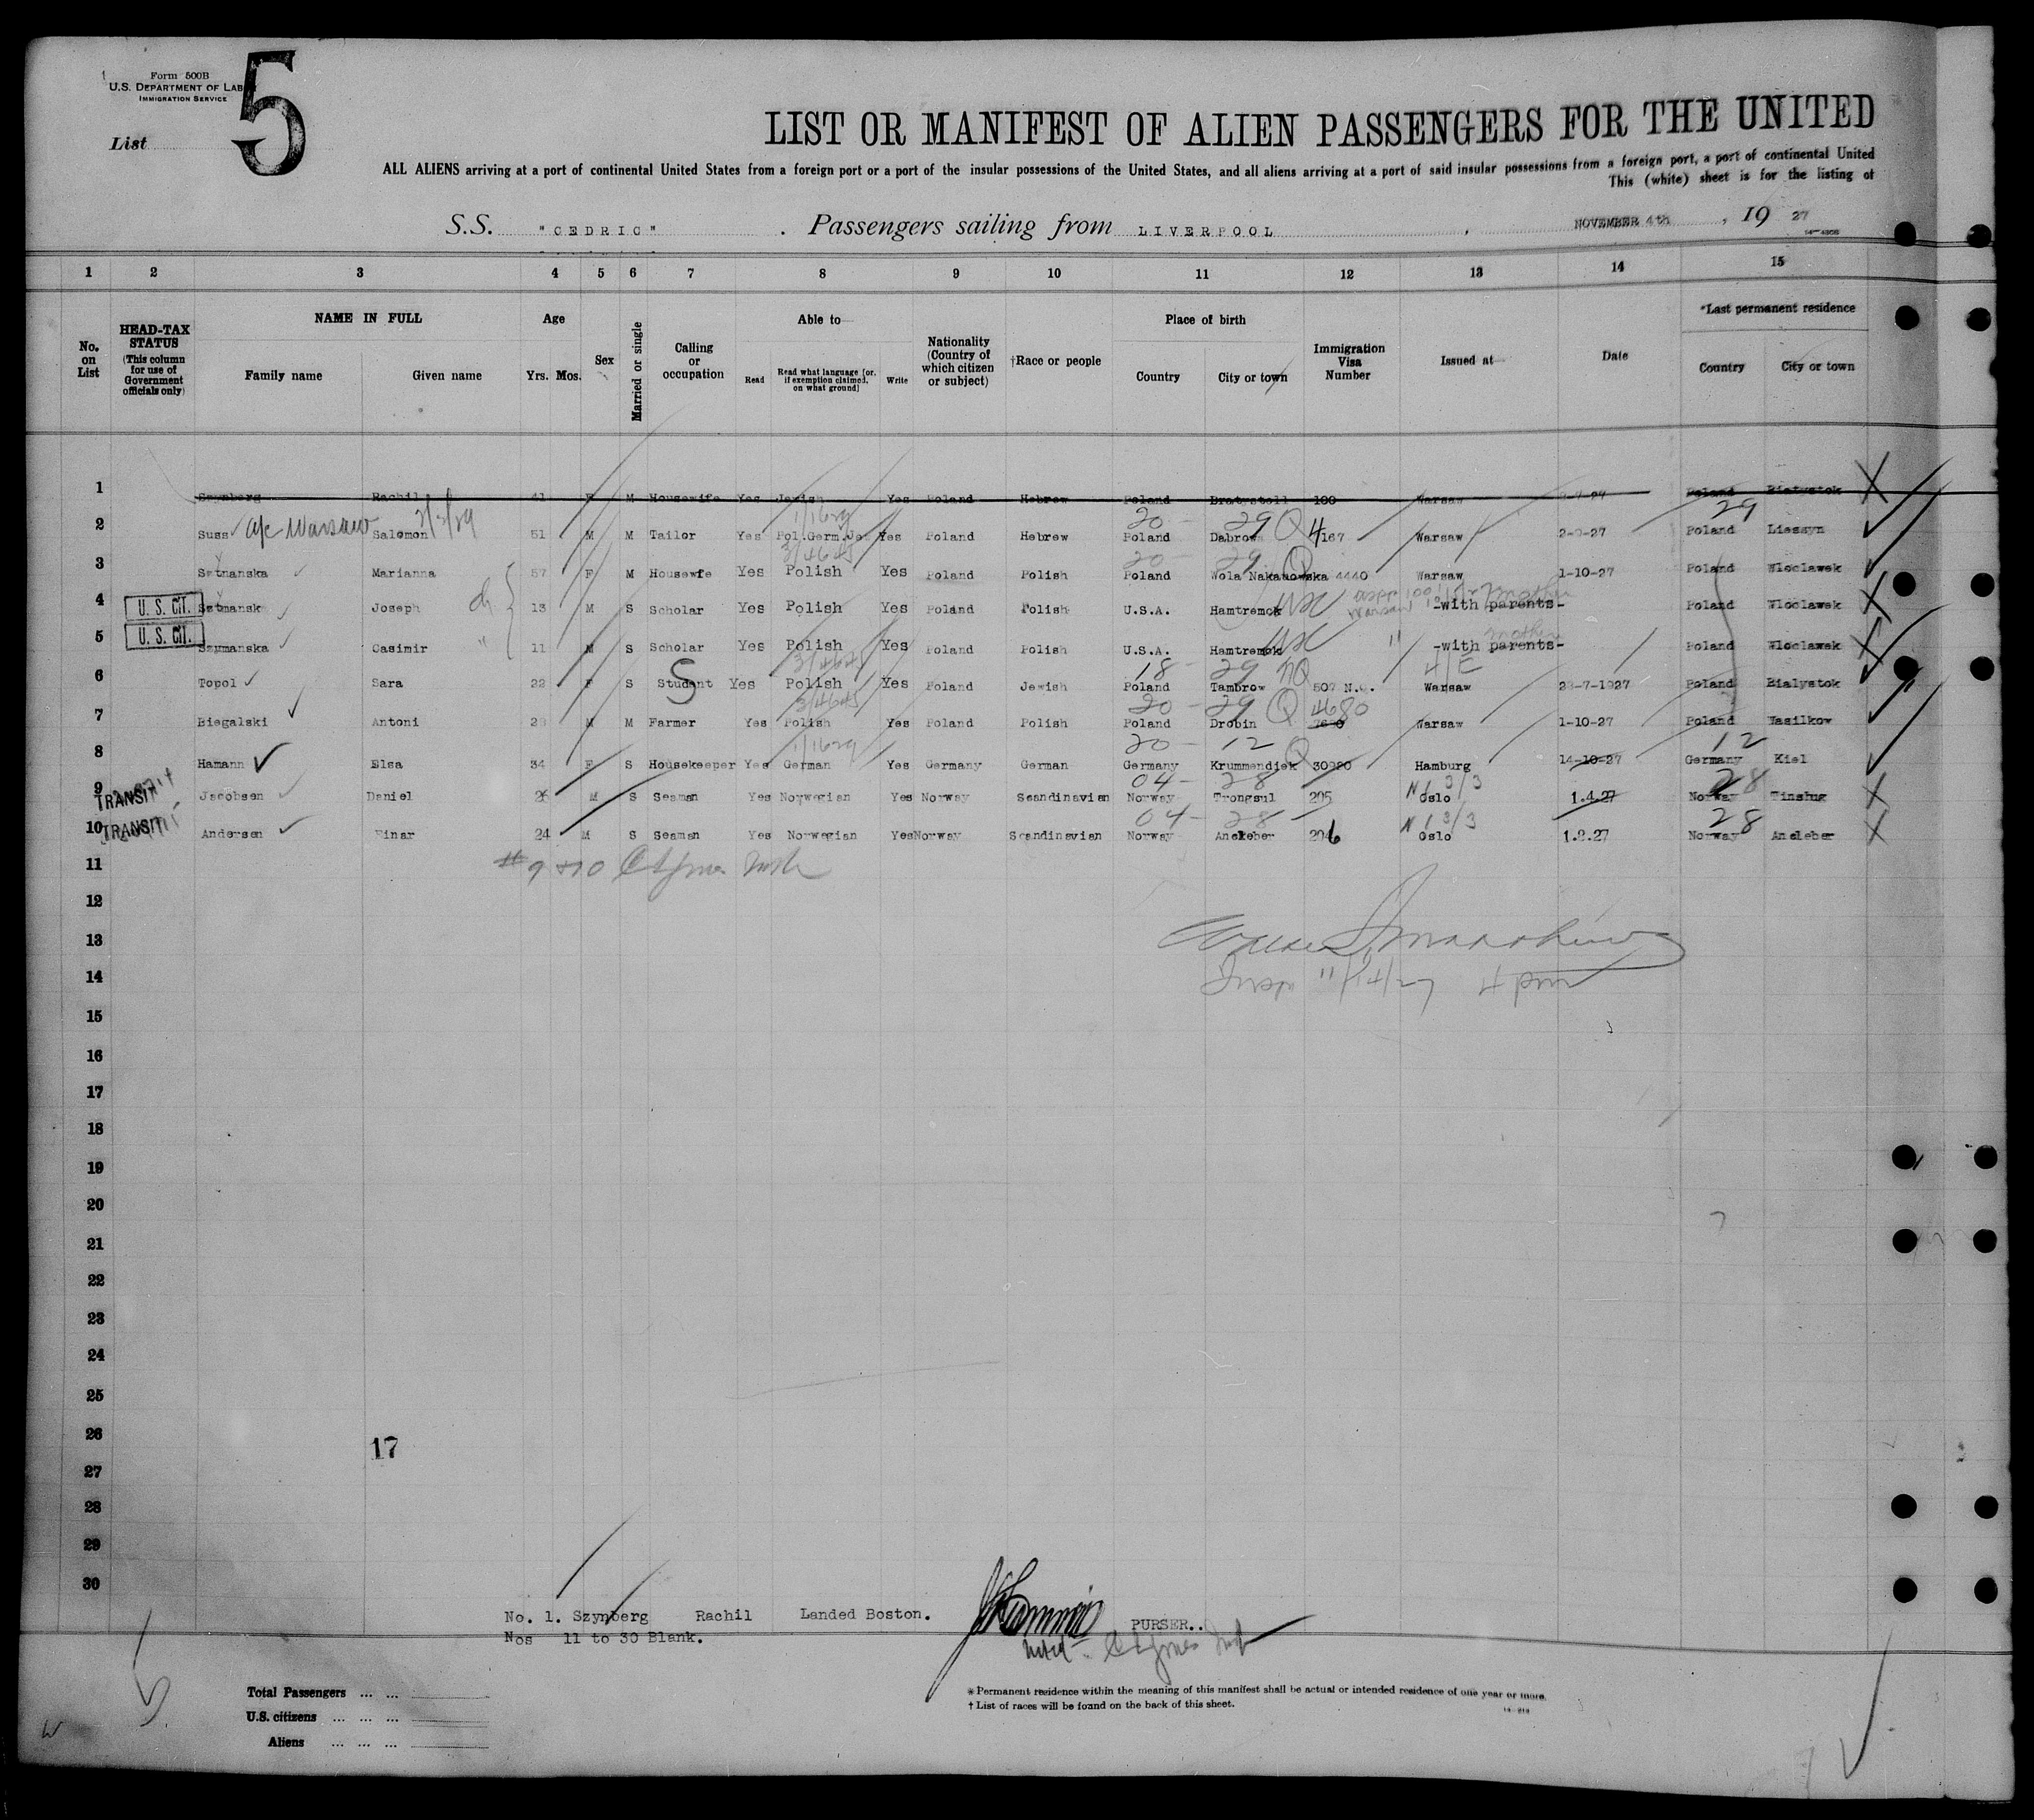 Form 500B
U.S. DEPARTMENT OF LAB
IMMIGRATION SERVICE
List 5
LIST OR MANIFEST OF ALIEN PASSENGERS FOR THE UNITED
ALL ALIENS arriving at a port of continental United States from a foreign port or a port of the insular possessions of the United States, and all aliens arriving at a port of said insular possessions from a foreign port, a port of continental United
This (white) sheet is for the listing of
S.S. "CEDRIC" . Passengers sailing from LIVERPOOL , NOVEMBER 4th , 19 27
1 2 3 4 5 6 7 8 9 10 11 12 13 14 15
No. on List
HEAD-TAX STATUS (This column for use of Government officials only)
NAME IN FULL
Family name Given name
Age
Yrs. Mos.
Sex
Married or single
Calling or occupation
Able to
Read Read what language [or, if exemption claimed, on what ground] Write
Nationality (Country of which citizen or subject)
†Race or people
Place of birth
Country City or town
Immigration Visa Number
Issued at
Date
*Last permanent residence
Country City or town
1 Szynberg Rachil 41 F M Housewife Yes Jewish Yes Poland Hebrew Poland 100 Warsaw Poland Bialystok
1/1629 20 - 29 Q 29
2 Suss a/c Warsaw Salomon 51 M M Tailor Yes Pol.Germ. Yes Poland Hebrew Poland Dabrowa 4167 Warsaw 27 Poland
3/4645 20 - 29 Q
3 Marianna 57 F M Housewfe Yes Polish Yes Poland Polish Poland Wola Nakanowska 4440 Warsaw 1-10-27 Poland Wloclawek
4 U. S. CIT. Joseph 13 M S Scholar Yes Polish Yes Poland Polish U.S.A. Hamtremck USC -with parents- mother Poland Wloclawek
5 U. S. CIT. Szymanska Casimir 11 M S Scholar Yes Polish Yes Poland Polish U.S.A. Hamtremck USC " -with parents- mother Poland Wloclawek
3/4645 18 - 29 NQ 4/E
6 Topol Sara 22 F S Student S Yes Polish Yes Poland Jewish Poland Tambrow 507 Warsaw 7-1927 Poland Bialystok
3/4645 20 - 29 Q 4680
7 Biegalski Antoni M M Farmer Yes Polish Yes Poland Polish Poland Drobin Warsaw 1-10-27 Poland Wasilkow
1/1629 20 - 12 Q 12
8 Hamann Elsa 34 F S Housekeeper Yes German Yes Germany German Germany Krummendiek 30920 Hamburg 14-10-27 Germany Kiel
04 - 28 28
9 TRANSIT Jacobsen Daniel 26 M S Seaman Yes Norwegian Yes Norway Scandinavian Norway Trongsul 205 Oslo 1.4.27 Norway
04 - 28 28
10 TRANSIT Andersen Einar 24 M S Seaman Yes Norwegian Yes Norway Scandinavian Norway Ancleber 206 Oslo 1.2.27 Norway Ancleber
11 # 9 & 10
12
13
14 Insp 11/14/27 4 pm
15
16
17
18
19
20
21
22
23
24
25
26 17
27
28
29
30
No. 1. Szynberg Rachil Landed Boston.
Nos 11 to 30 Blank.
PURSER..
Total Passengers ... ...
U.S. citizens ... ... ...
Aliens ... ... ...
* Permanent residence within the meaning of this manifest shall be actual or intended residence of one year or more.
† List of races will be found on the back of this sheet.